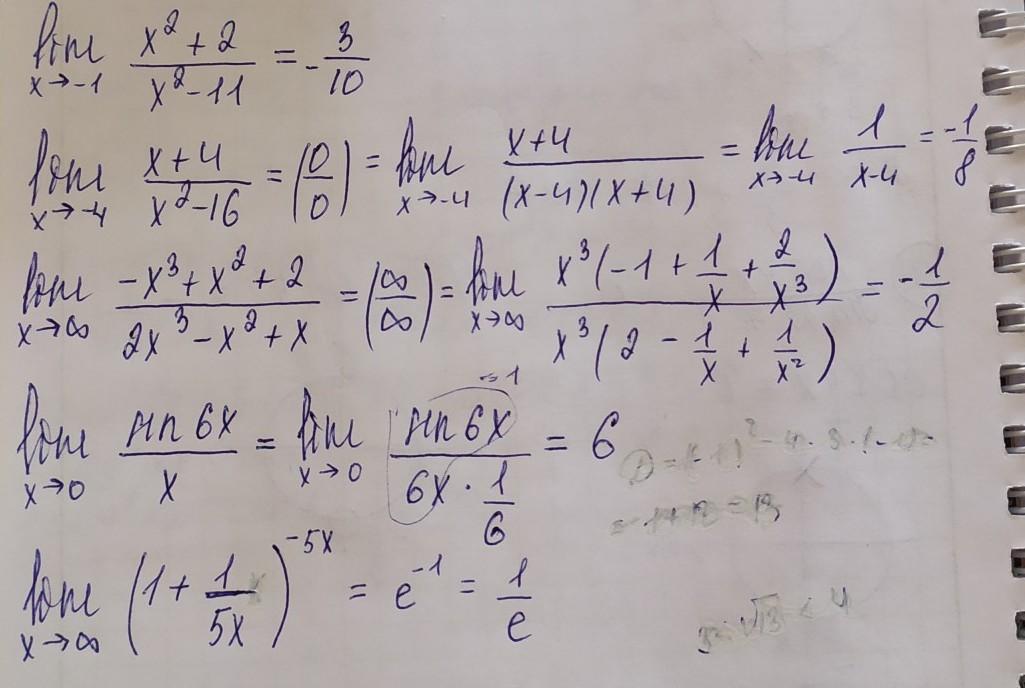 lim x→-1 (x² + 2)/(x² - 11) = -3/10
lim x→-4 (x+4)/(x²-16) = (0/0) = lim x→-4 (x+4)/((x-4)(x+4)) = lim x→-4 1/(x-4) = -1/8
lim x→∞ (-x³+x²+2)/(2x³-x²+x) = (∞/∞) = lim x→∞ (x³(-1 + 1/x + 2/x³))/(x³(2 - 1/x + 1/x²)) = -1/2
=1
lim x→0 (sin 6x)/x = lim x→0 (sin 6x)/(6x · 1/6) = 6
lim x→∞ (1 + 1/(5x))^(-5x) = e⁻¹ = 1/e